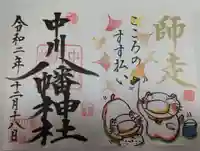 師走
こころの
すす払い
中川八幡神社
令和二年十二月十八日